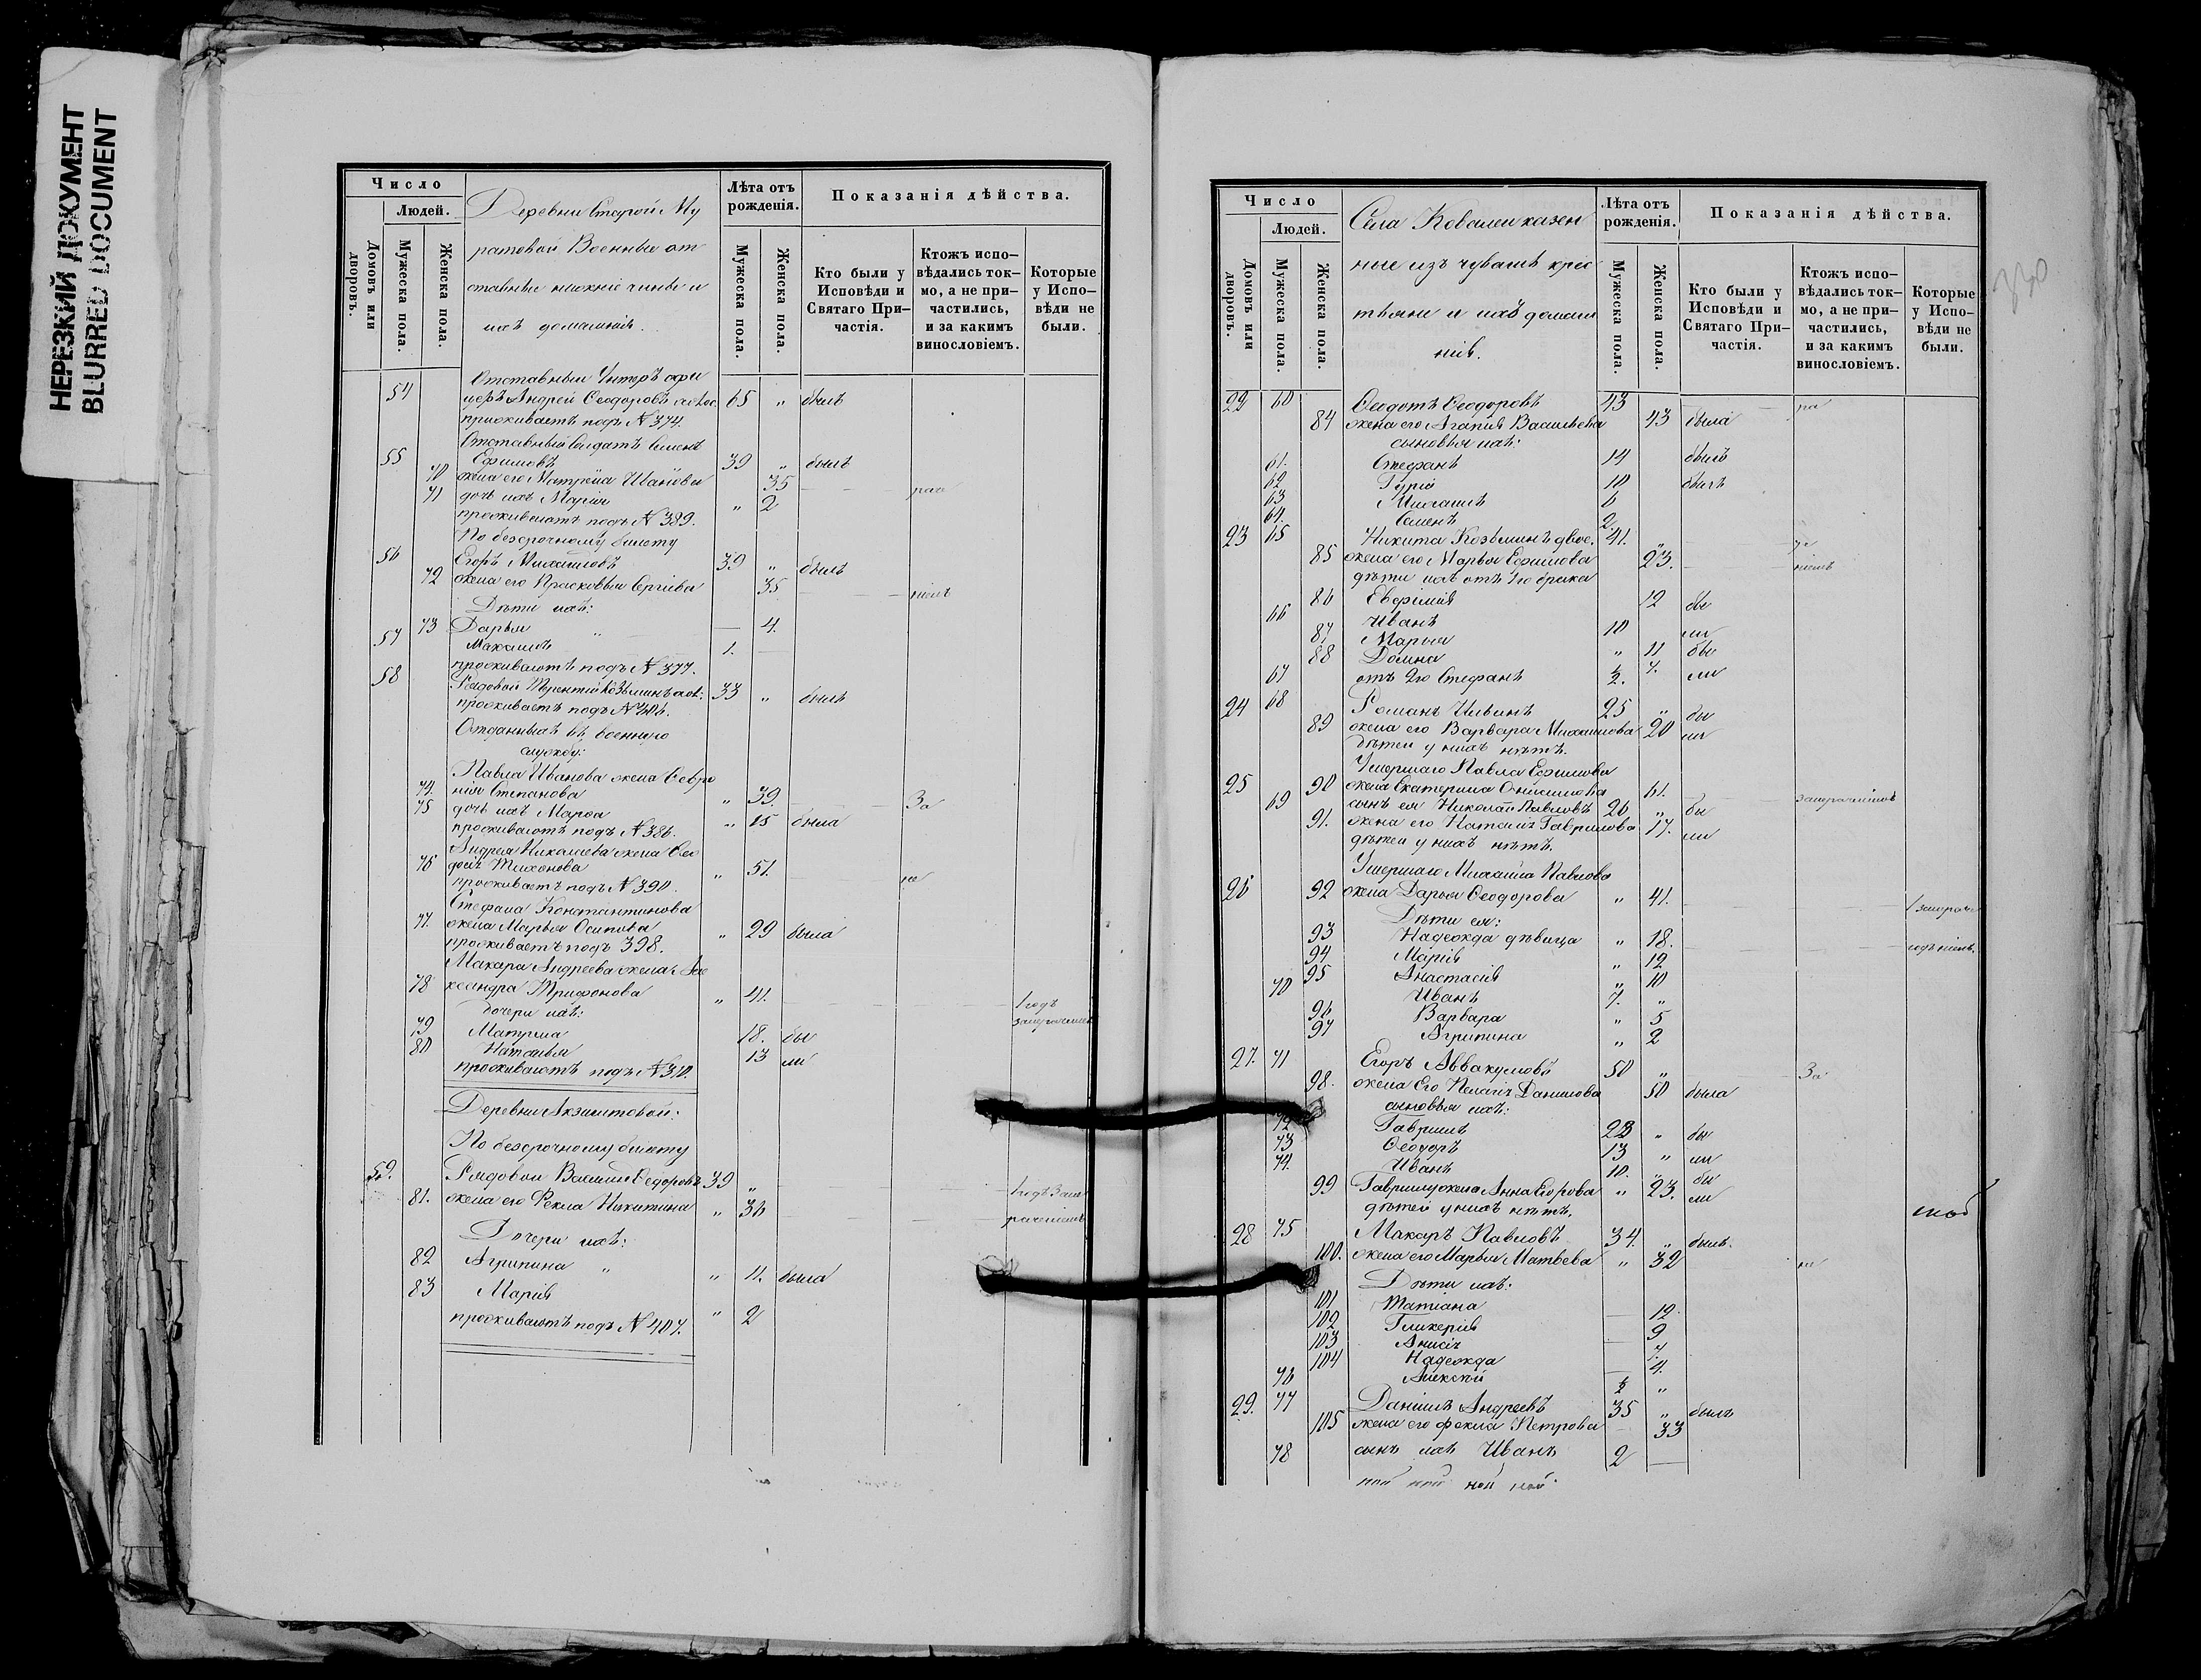 НЕРЕЗКИЙ ДОКУМЕНТ
BLURRED DOCUMENT
Число
Людей.
Домовъ или дворовъ.
Мужеска пола.
Женска пола.
Деревни Старой Му
ратовой Военные от
ставные нижніе чины и
ихъ домашніе.
Лѣта отъ рожденія.
Мужеска пола.
Женска пола.
Показанія дѣйства.
Кто были у Исповѣди и Святаго При-частія.
Ктожъ испо-вѣдались ток-мо, а не при-частились, и за какимъ винословіемъ.
Которые у Испо-вѣди не были.
Отставный Унтеръ офи
54 церъ Андрей Ѳеодоровъ 65 " былъ
проживаетъ подъ № 374.
Отставный Солдатъ Семенъ
55 Ефимовъ 39 " былъ
70 жена его Матрена Иванова 35
71 дочь ихъ Марія " 2
проживаютъ подъ № 389.
По безсрочному билету
56 Егоръ Михайловъ 39 " былъ
72 жена его Прасковья Сергіева 35
Дѣти ихъ:
73 Дарья " — 4.
57 Максимъ 1. —
проживаютъ подъ № 377.
58 Рядовой Терентій Козьминъ 33 " былъ
проживаетъ подъ №
Отданныхъ въ военную
службу:
Павла Иванова жена Февро
74. нія Степанова " 39. За
75 дочь ихъ Марѳа " 15 была
проживаютъ подъ № 386.
Андрея Николаева жена Ѳео
76 досія Тихонова " 51. не
проживаетъ подъ № 390.
Стефана Константинова
77. жена Марья Осипова " 29 была
проживаетъ подъ 398.
Макара Андреева жена Але
78 ксандра Трифонова " 41.
дочери ихъ:
79 Матрена 18. бы
80 Наталья 13 ли
проживаютъ подъ №
Деревни Акзигитовой:
По безсрочному билету
59. Рядовой Василій Ѳедоровъ 39 "
81. жена его Фекла Никитина " 36
Дочери ихъ:
82 Агрипина " " 11. была
83 Марія " 2
проживаютъ подъ № 407.
Число
Людей.
Домовъ или дворовъ.
Мужеска пола.
Женска пола.
Села Ковалей казен
ные изъ чувашъ крес
тьяне и ихъ домаш
ніе.
Лѣта отъ рожденія.
Мужеска пола.
Женска пола.
Показанія дѣйства.
Кто были у Исповѣди и Святаго При-частія.
Ктожъ испо-вѣдались ток-мо, а не при-частились, и за какимъ винословіемъ.
Которые у Испо-вѣди не были.
330
22 60 Ѳеодотъ Ѳеодоровъ 43
84 жена его Агапія Васильева 43 была
сыновья ихъ:
61. Стефанъ 14 былъ
62 Гурій 10 былъ
63 Михаилъ 6
64. Семенъ 2
23 65 Никита Козьминъ двое. 41.
85 жена его Марья Ефимова 23.
дѣти ихъ отъ 1го брака
86 Евфимія 12 бы
66 Иванъ 10 ли
87 Марья " 11 бы
88 Домна 7. ли
67 отъ 2го Стефанъ
24 68 Романъ Ильинъ 25 " бы
89 жена его Варвара Михайлова 20 ли
дѣтей у нихъ нѣтъ.
Умершаго Павла Ефимова
25 90 жена Екатерина Онисимова 61.
69 сынъ ея Николай Павловъ 26 " бы
91. жена его Наталія Гаврилова 17. ли
дѣтей у нихъ нѣтъ.
Умершаго Михаила Павлова
26 92 жена Дарья Ѳеодорова " 41.
Дѣти ея:
93 Надежда дѣвица " 18.
94 Марія " 12
95 Анастасія " 10
70 Иванъ 7. "
96 Варвара " 5
97 Агрипина " 2
27. 71 Егоръ Аввакумовъ 50 " За
98. жена Его Пелагія Данилова 50 была
сыновья ихъ:
72 Гавриилъ " бы
73 Ѳеодоръ 13 " ли
74. Иванъ 10. " бы
99 Гаврилы жена Анна Егорова " 23. ли
дѣтей у нихъ нѣтъ.
28 75 Макаръ Павловъ 34. " былъ.
100. жена его Марья Матвѣева " 32 не
Дѣти ихъ:
101 Татіана — 12.
102 Гликерія — 9
103 Анисія — 7.
104 Надежда — 4.
76 Алексѣй "
29. 77 Даніилъ Андреевъ 35 " былъ
105 жена его Фекла Петрова 33
78 сынъ ихъ Иванъ 2 —